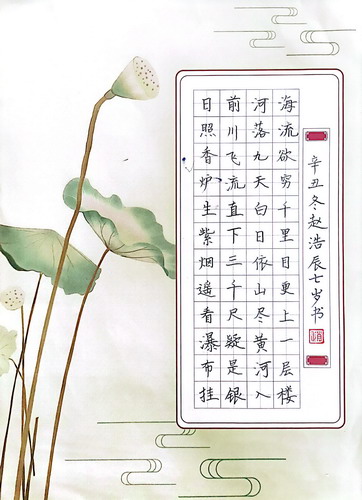 日照香炉生紫烟遥看瀑布挂
前川飞流直下三千尺疑是银
河落九天白日依山尽黄河入
海流欲穷千里目更上一层楼
辛丑冬赵浩辰七岁书